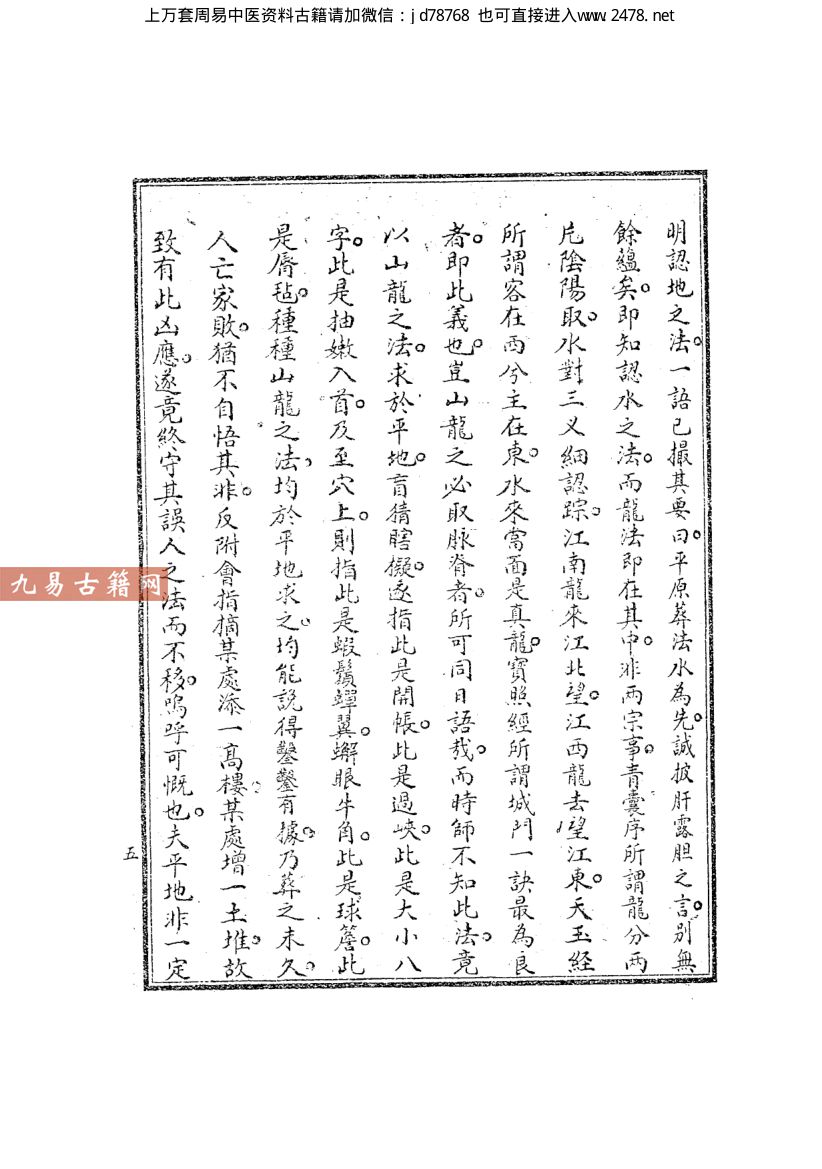 上万套周易中医资料古籍请加微信：jd78768 也可直接进入www.2478.net
明認地之法。一語已撮其要。曰平原葬法水為先。誠披肝露胆之言。別無
餘蘊矣。即知認水之法。而龍法即在其中。非兩宗事。青囊序所謂龍分兩
片陰陽取。水對三义細認踪。江南龍來江北望。江西龍去望江東。天玉經
所謂客在西兮主在東。水來當面是真龍。寶照經所謂城門一訣最為良
者。即此義也。豈山龍之必取脉脊者。所可同日語哉。而時師不知此法。竟
以山龍之法。求於平地。盲猜瞎擬。遂指此是開帳。此是過峽。此是大小八
字。此是抽嫩入首。及至穴上。則指此是蝦鬚蟬翼。蠏眼牛角。此是球簷。此
是唇毡。種種山龍之法、均於平地求之。均能說得鑿鑿有據。乃葬之未久。
人亡家敗。猶不自悟其非。反附會指摘某處添一高樓。某處增一土堆。故
致有此凶應。遂竟終守其誤人之法而不移。嗚呼可慨也。夫平地非一定
五
九易古籍网